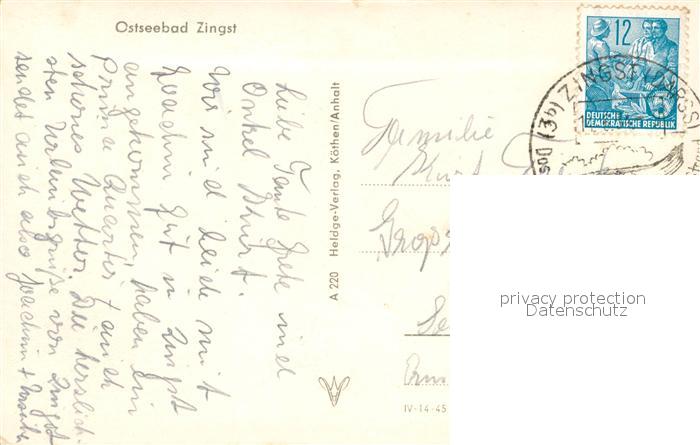 Ostseebad Zingst
Liebe Tante Grete und
Onkel Kurt.
Wir sind beide mit
Joachim gut in Zingst
angekommen, haben ein
prima Quartier + auch
schönes Wetter. Die herzlich-
sten Urlaubsgrüße von Zingst
sendet euch also Joachim +
A 220 Heldge-Verlag, Köthen/Anhalt
IV-14-45
Familie
Kurt
12
DEUTSCHE
DEMOKRATISCHE REPUBLIK
(3b) ZINGST
privacy protection
Datenschutz